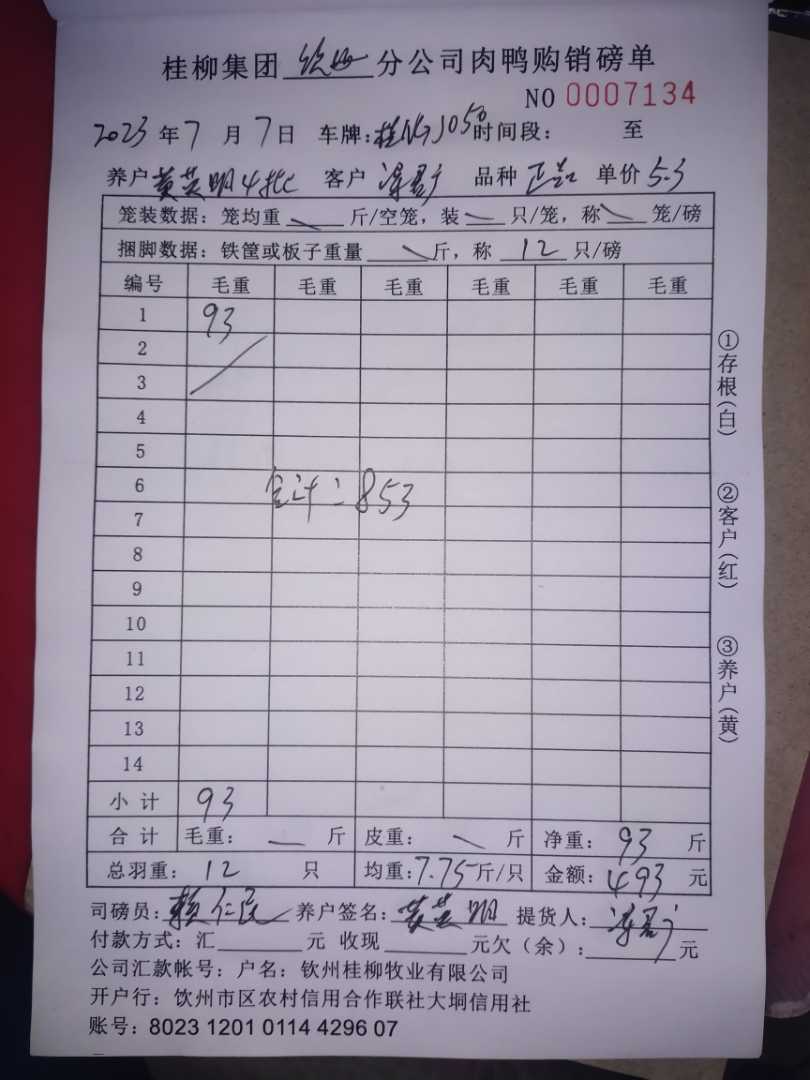 桂柳集团 钦州 分公司肉鸭购销磅单
NO 0007134
2023 年 7 月 7 日 车牌:桂NGJ050 时间段: 至
养户 黄英明4批 客户 品种 单价 5.3
笼装数据: 笼均重 斤/空笼, 装 只/笼, 称 笼/磅
捆脚数据: 铁筐或板子重量 斤, 称 12 只/磅
编号 毛重 毛重 毛重 毛重 毛重 毛重
1 93
2
3
4
5
6
合计:853
7
8
9
10
11
12
13
14
小计 93
合计 毛重: 斤 皮重: 斤 净重: 93 斤
总羽重: 12 只 均重: 7.75 斤/只 金额: 493 元
司磅员: 赖仁民 养户签名: 黄英明 提货人:
付款方式: 汇 元 收现 元欠(余): 元
公司汇款帐号: 户名: 钦州桂柳牧业有限公司
开户行: 饮州市区农村信用合作联社大垌信用社
账号: 8023 1201 0114 4296 07
①存根(白)
②客户(红)
③养户(黄)